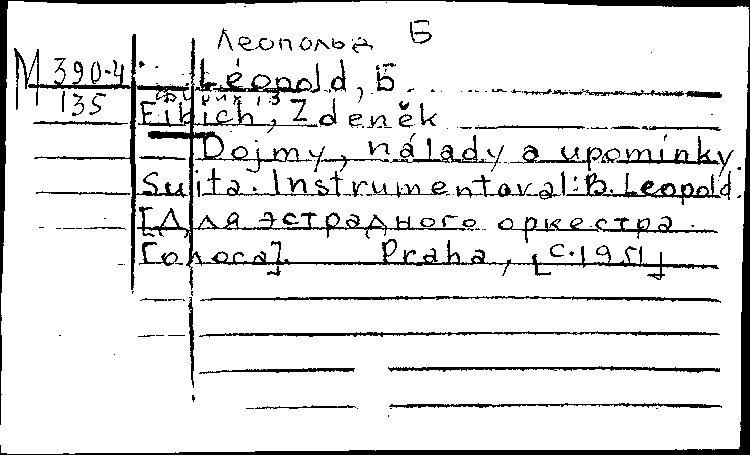 Леопольд Б
М 390-4 Léopold, Б.
135 Фибих З
Fibich, Zdeněk
Dojmy, nálady a upomínky.
Suita. Instrumentoval: B. Leopold.
[Для эстрадного оркестра.
Голоса]. Praha, [c. 1951]